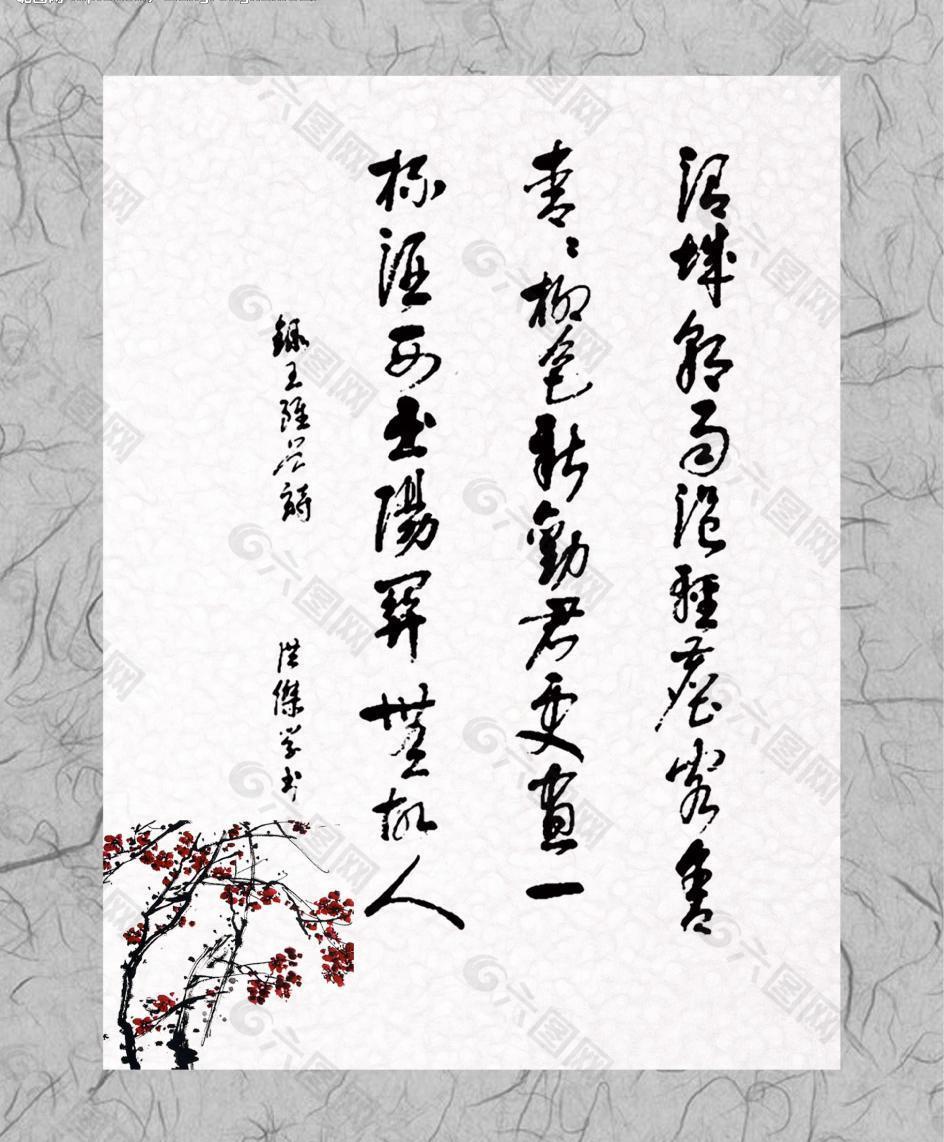 渭城朝雨浥輕塵客舍
青々柳色新勸君更盡一
杯酒西出陽關無故人
錄王維詩 洪傑學書
六图网